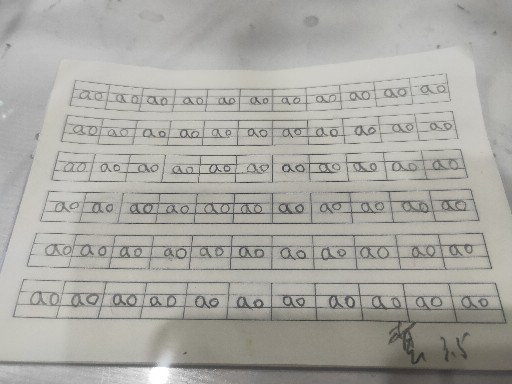 ao ao ao ao ao ao ao ao ao ao ao
ao ao ao ao ao ao ao ao ao ao ao
ao ao ao ao ao ao ao ao ao ao ao
ao ao ao ao ao ao ao ao ao ao ao
ao ao ao ao ao ao ao ao ao ao ao
ao ao ao ao ao ao ao ao ao ao ao
3.5